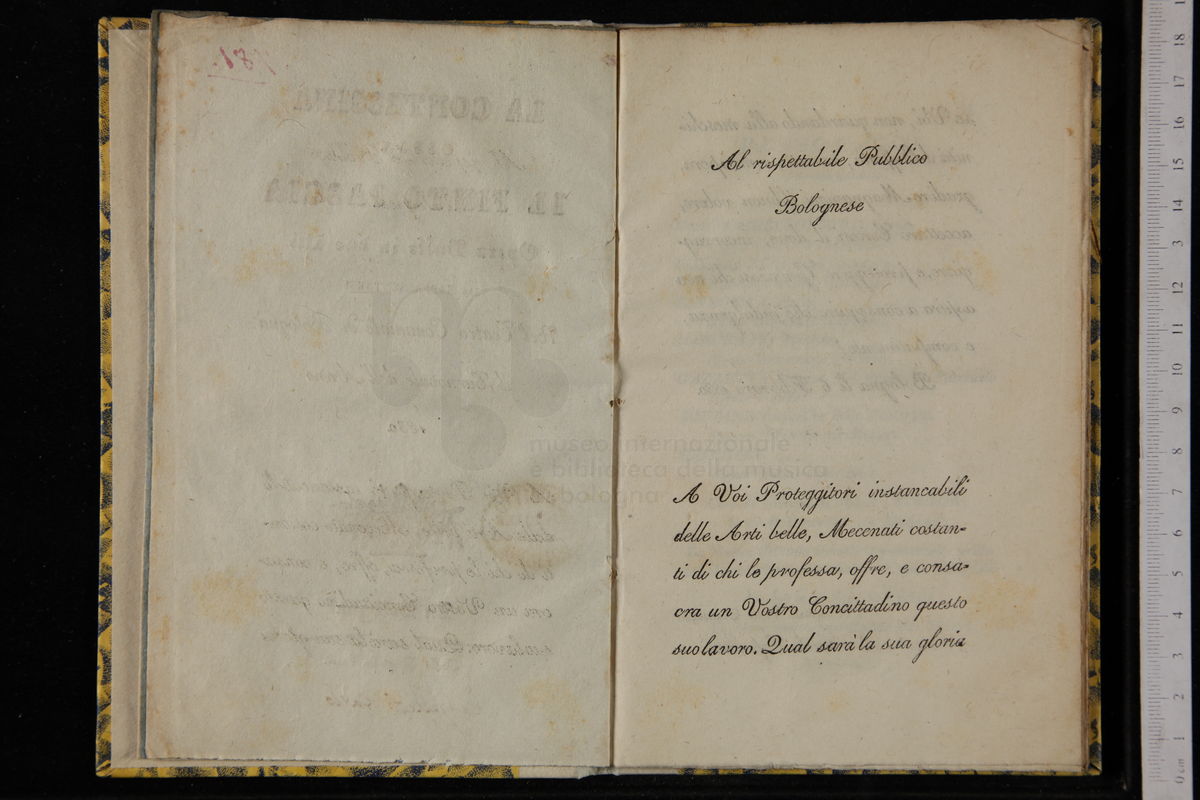 187
Al rispettabile Pubblico
Bolognese
A Voi Proteggitori instancabili
delle Arti belle, Mecenati costan=
ti di chi le professa, offre, e consa=
cra un Vostro Concittadino questo
suo lavoro. Qual sarà la sua gloria
museo internazionale
e biblioteca della musica
di bologna
0 cm 1 2 3 4 5 6 7 8 9 10 11 12 13 14 15 16 17 18